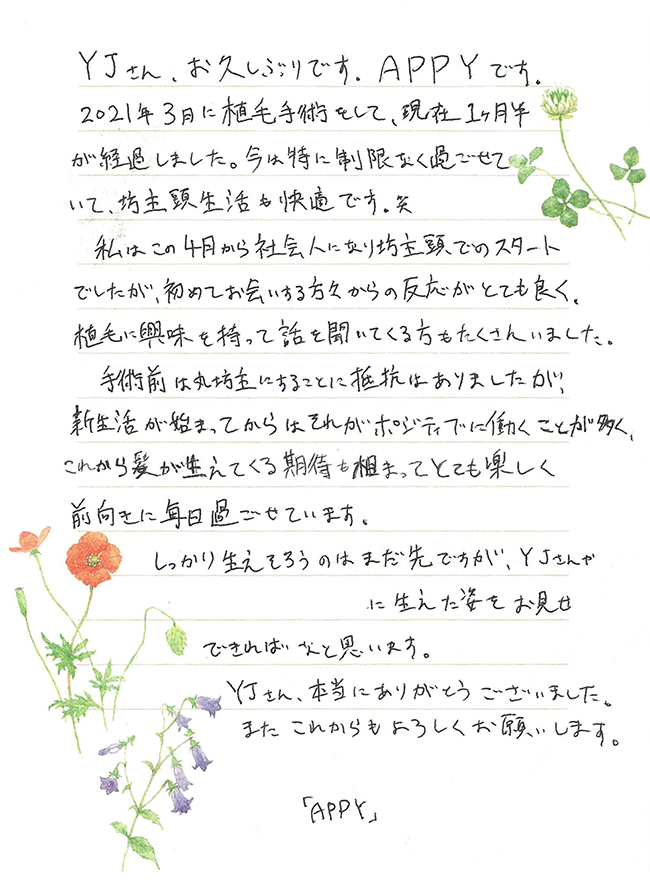 YJさん、お久しぶりです。APPYです。
2021年3月に植毛手術をして、現在1ヶ月半
が経過しました。今は特に制限なく過ごせて
いて、坊主頭生活も快適です。笑
私はこの4月から社会人になり坊主頭でのスタート
でしたが、初めてお会いする方々からの反応がとても良く、
植毛に興味を持って話を聞いてくる方もたくさんいました。
手術前は丸坊主にすることに抵抗はありましたが、
新生活が始まってからはそれがポジティブに働くことが多く、
これから髪が生えてくる期待も相まってとても楽しく
前向きに毎日過ごせています。
しっかり生えそろうのはまだ先ですが、YJさんや
に生えた姿をお見せ
できればなと思います。
YJさん、本当にありがとうございました。
またこれからもよろしくお願いします。
「APPY」